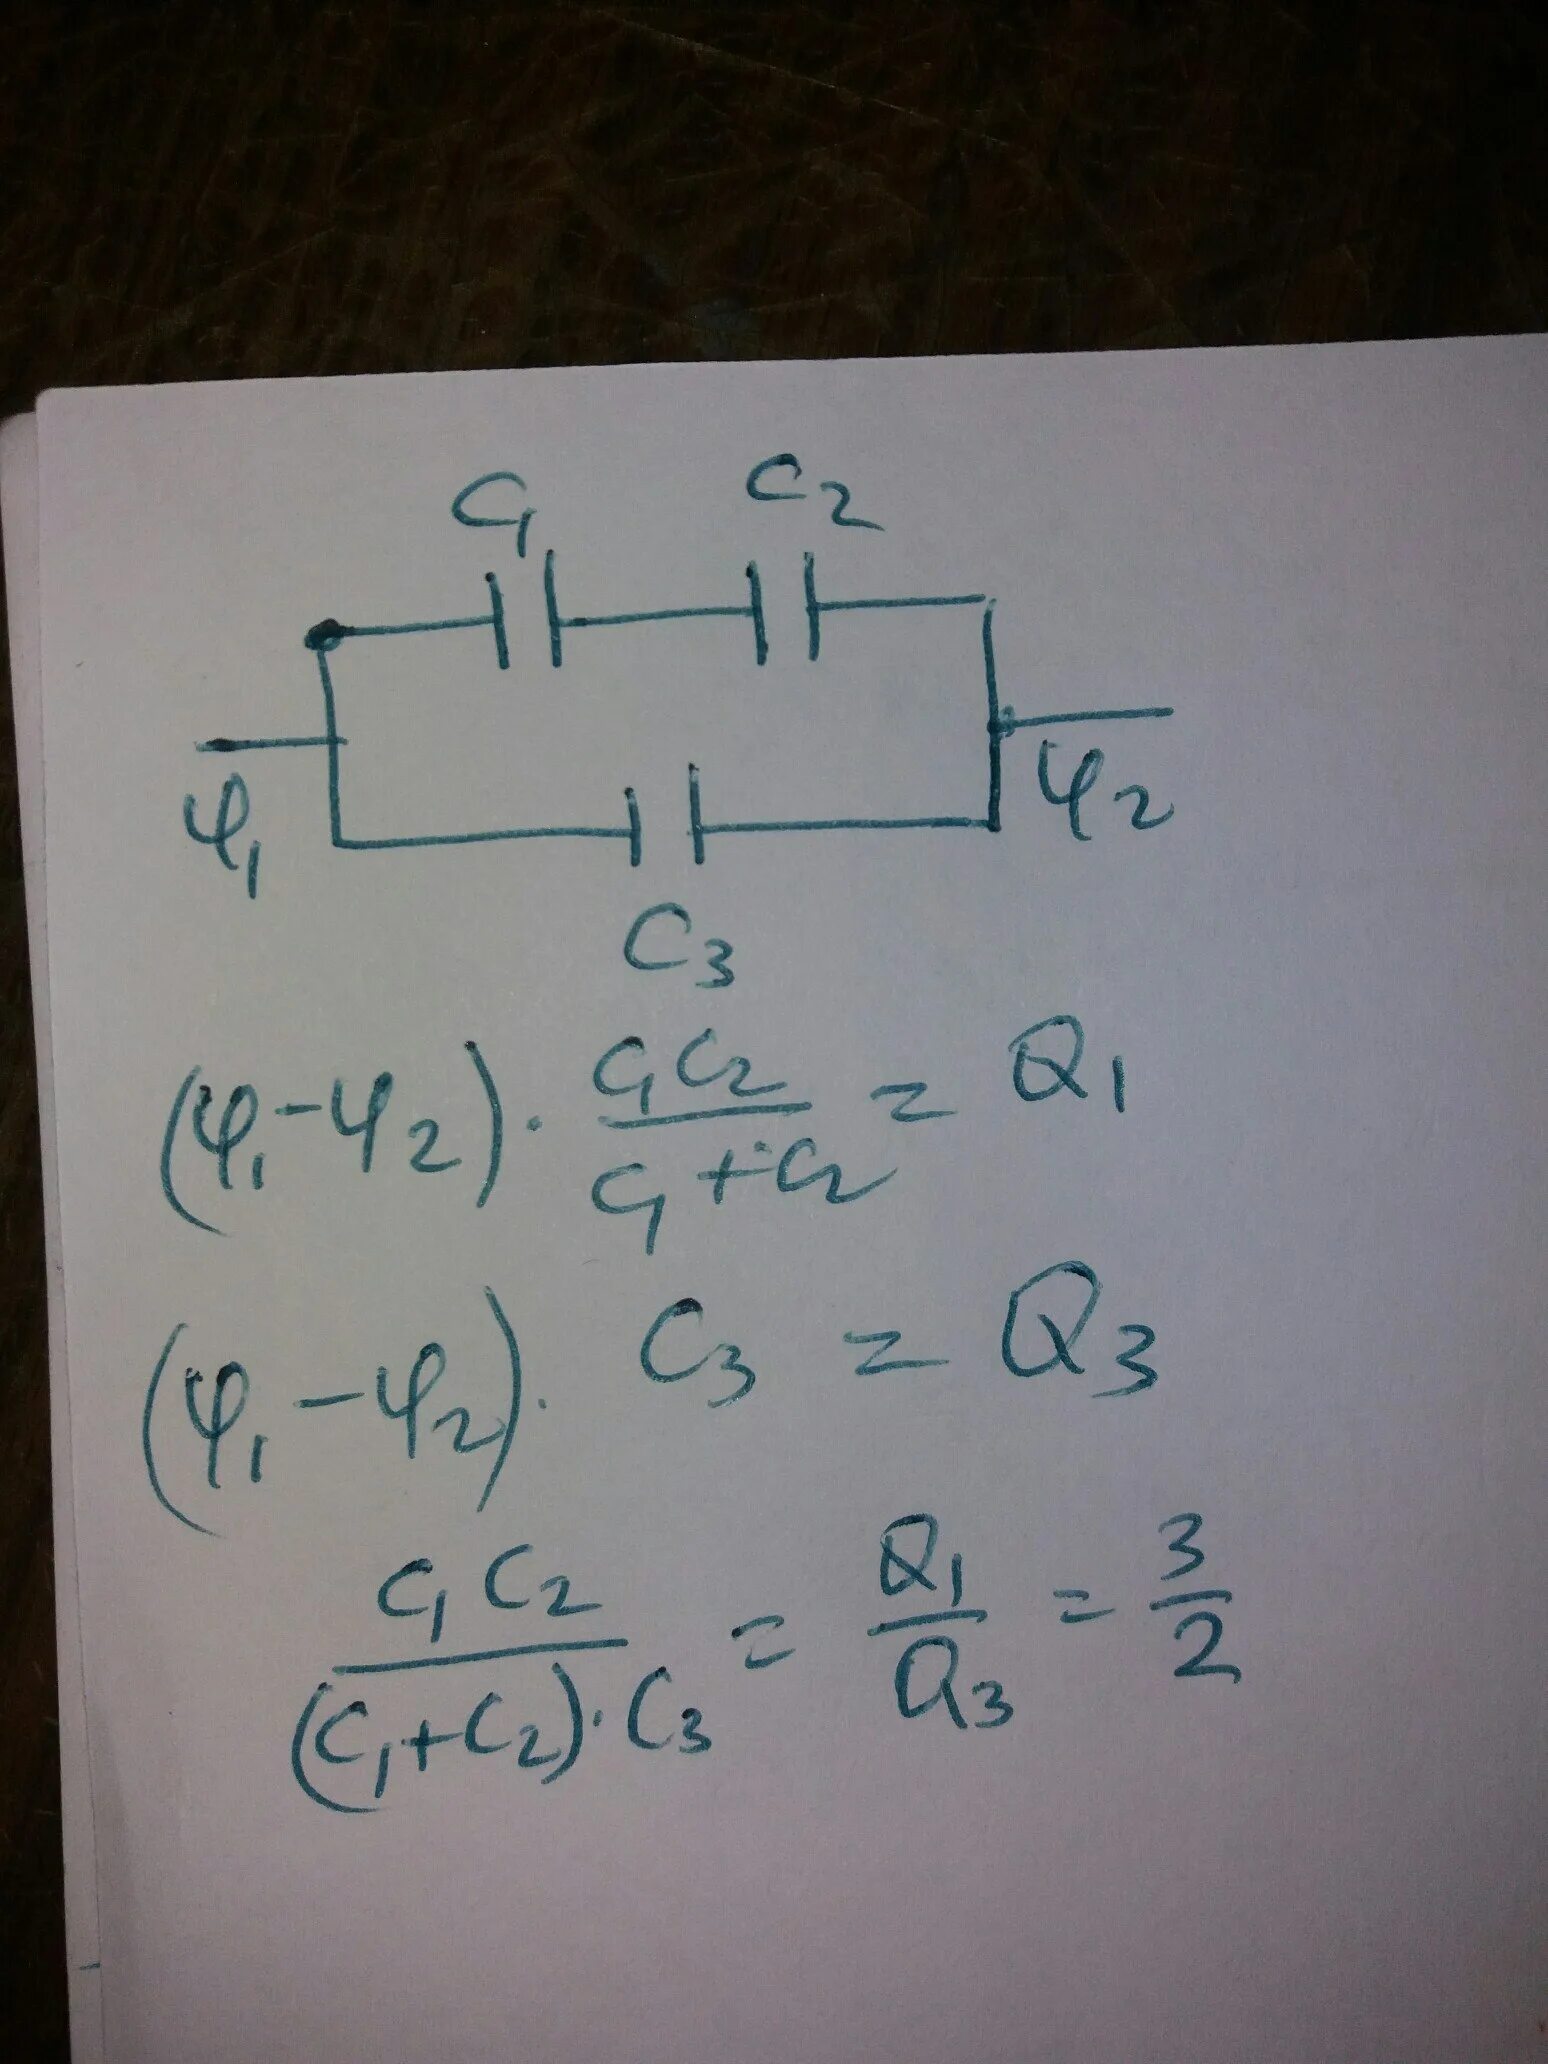 C₁ C₂
φ₁ φ₂
C₃
(φ₁-φ₂)·C₁C₂/(C₁+C₂) = Q₁
(φ₁-φ₂)·C₃ = Q₃
C₁C₂/((C₁+C₂)·C₃) = Q₁/Q₃ = 3/2